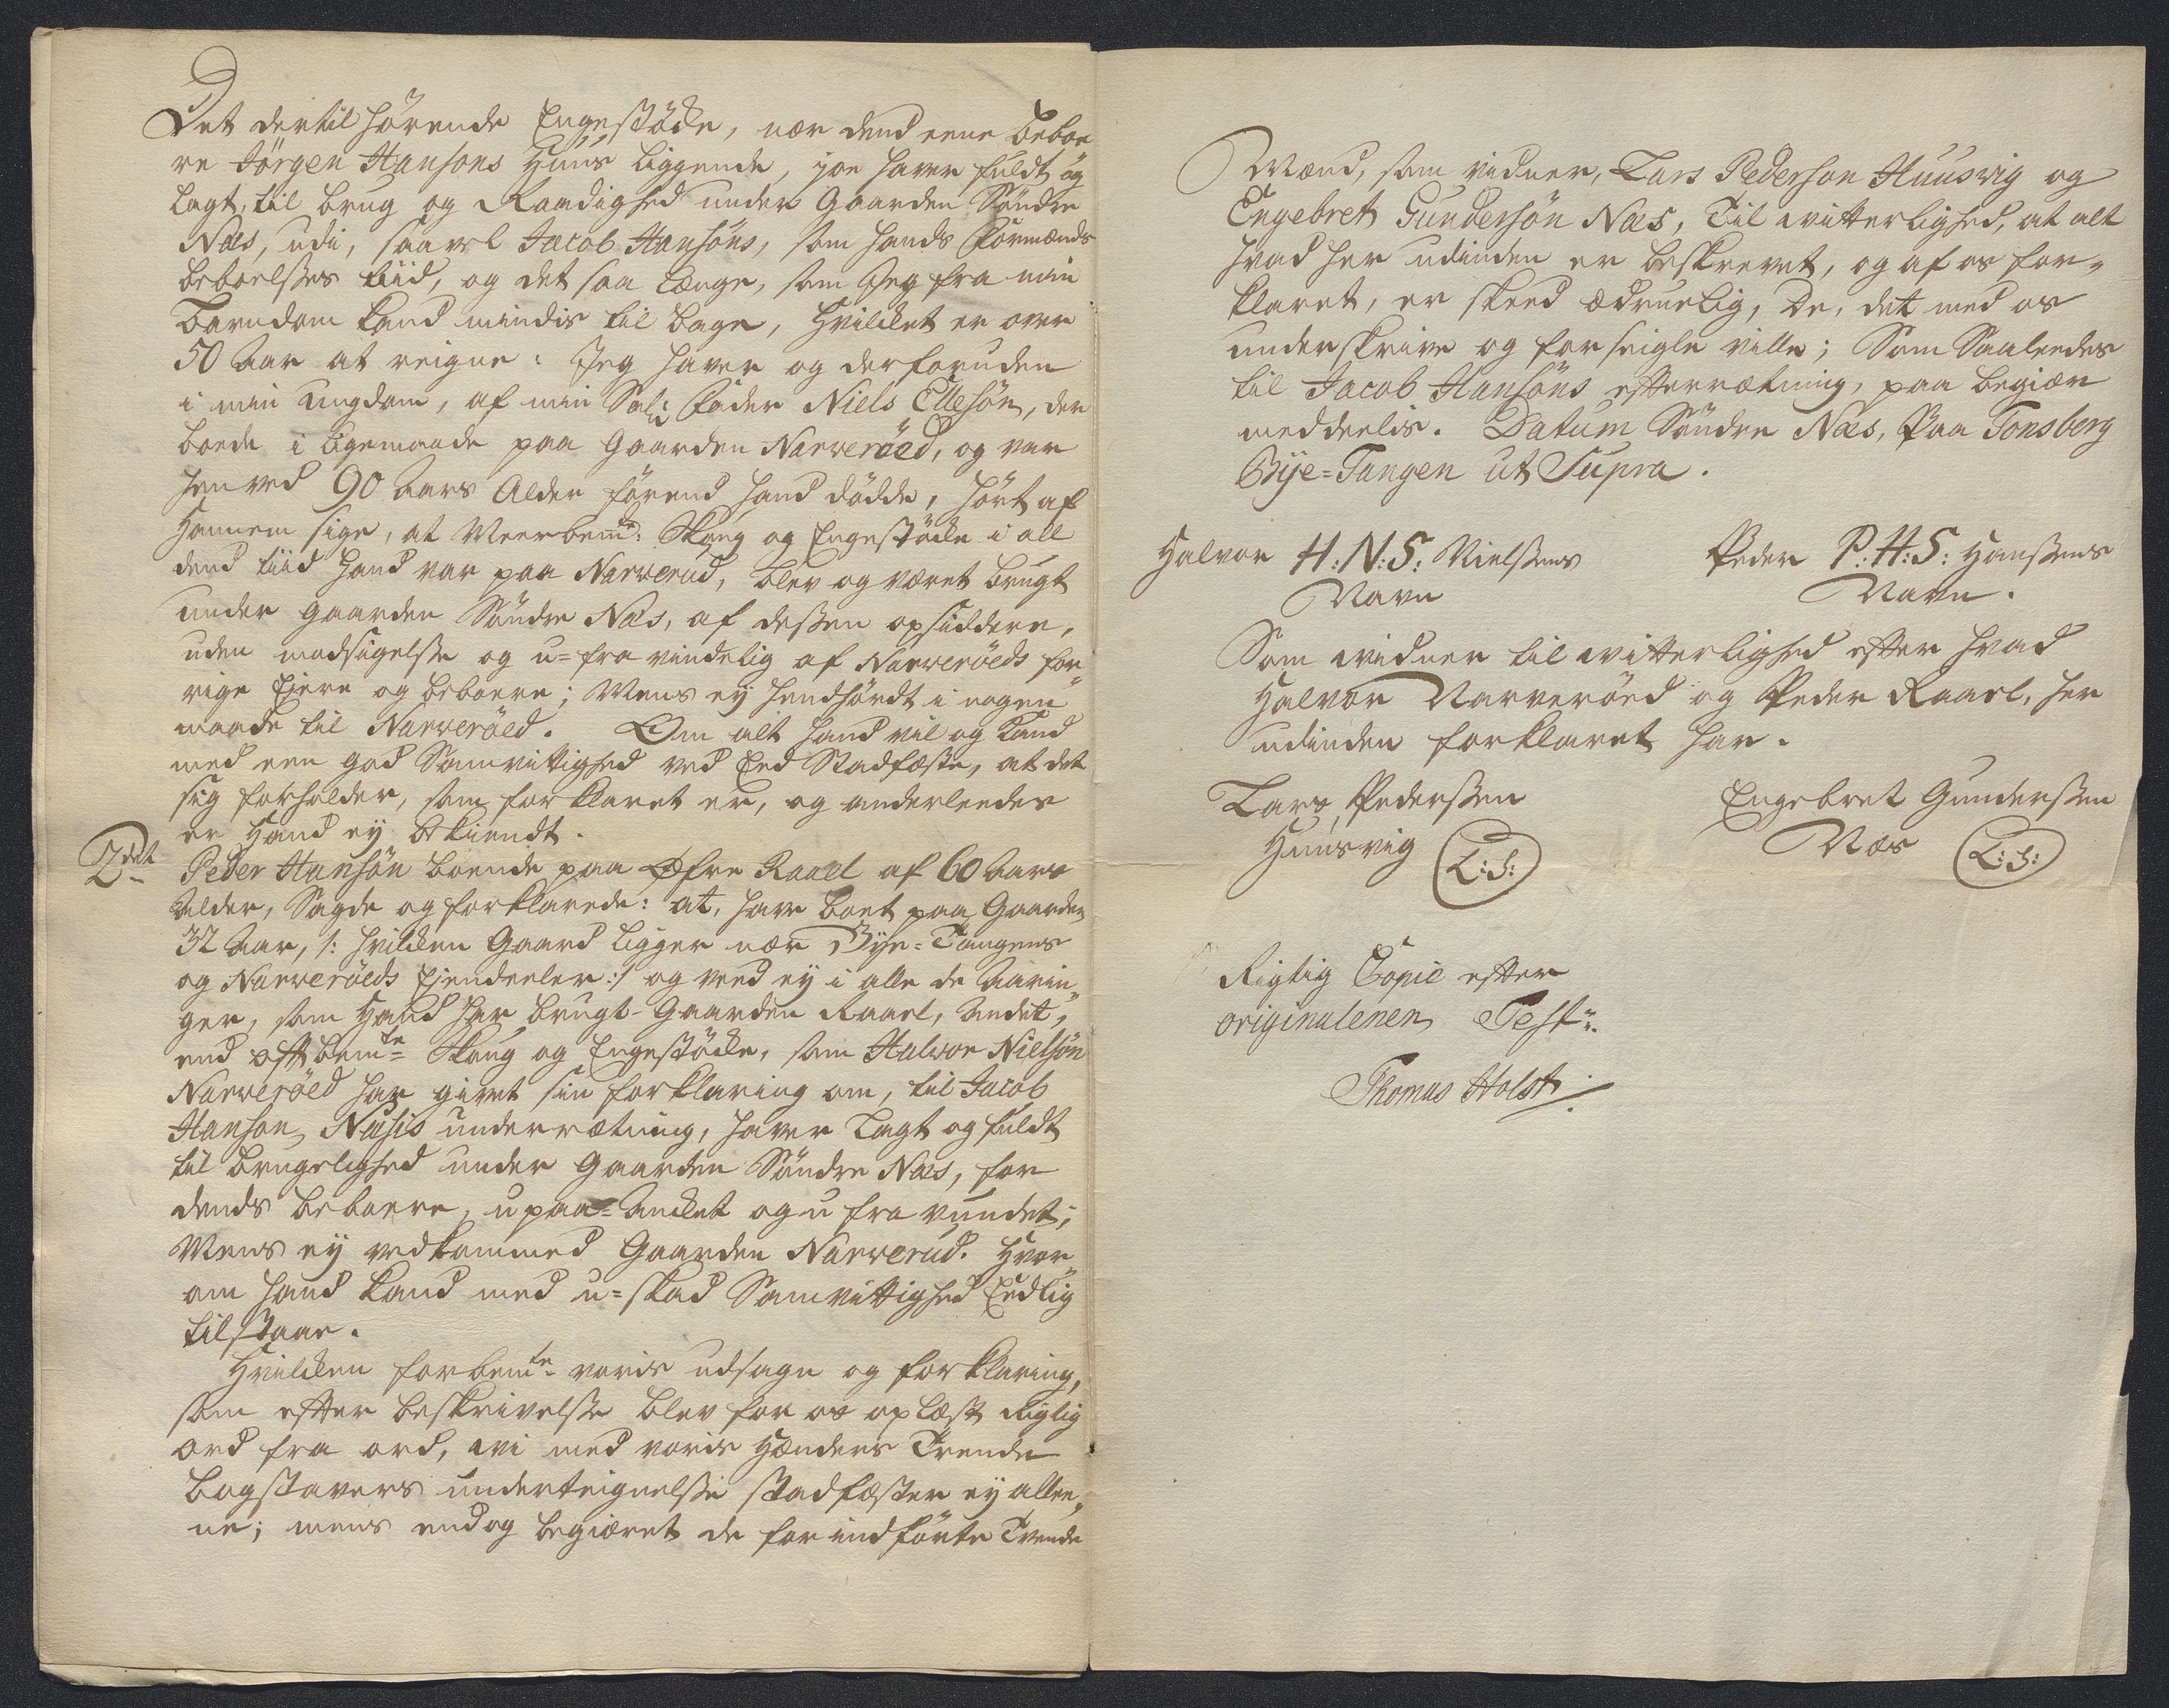 Det dertil hörende Engestöcke, nær dend eene beboe
re Jörgen Hansons Huus liggende, joe haver fuldt og
lagt, til brug og Raadighed under Gaarden Söndre
Næs, udi, saavel Jacob Hansöns, som hands Formænds
beboelsses tiid, og det saa længe, som Jeg fra min
Barndom kand mindis til bage, Hvilcket er over
50 Aar at reigne: Jeg haver og derforuden
i min Ungdom, af min Sal: Fader Niels Ellesön, der
boede i ligemaade paa Gaarden Narveröed, og var
henved 90 Aars Alder förend hand dödde, hört af
Hannem sige, at Meerbemte: Skoug og Engestöcke i all
dend tiid hand var paa Narverud, blev og været brugt
under Gaarden Söndre Næs, af dessen opsiddere,
uden modsigelsse og u=fra vindelig af Narveröeds for-
rige Ejere og beboere; Mens ey henhördt i nogen
maade til Narveröed. Om alt hand vil og kand
med een god Samvittighed ved Eed Stadfæste, at det
sig forholder, som forklaret er, og anderleedes
er Hand ey bekiendt.
2det Peder Hansön boende paa Öfre Raael af 60 Aars
Alder, Sagde og forklarede: at, have boet paa Gaarden
32 Aar, /: hvilcken Gaard ligger nær Bye=Tangens
og Narveröeds Ejendeeler :/ og veed ey i alle de Aarin-
ger, som Hand har brugt Gaarden Raael, Andet,
end oftbemte Skoug og Engestöcke, som Halvor Nielsön
Narveröed har givet sin forklaring om, til Jacob
Hanson Næsis underrætning, haver Lagt og fuldt
til brugelighed under Gaarden Söndre Næs, for
dends beboere, upaa=Ancket og u fra vundet;
Mens ey vedkommed Gaarden Narverud. Hvor
om hand kand med u=skad Samvittighed Eedlig
tilstaae.
Hvilcken forbemte voris udsagn og forklaring,
som efter beskrivelsse blev for os oplæst Rigtig
ord fra ord, wi med voris Hænders Trende
bogstavers underteignelsse stadfæster ey allee-
ne; mens endog begiæret de for indförte Tvende
Mænd, som vidner, Lars Pederson Huusvig og
Engebret Gundersön Næs, Til witterlighed, at alt
hvad her udinden er beskrevet, og af os for-
klaret, er skeed ædruelig, De, det med os
underskrive og forseigle ville; Som Saaleedes
til Jacob Hansöns efterrætning, paa begiær
meddeelis. Datum Söndre Næs, Paa Tonsberg
Bÿe=Tangen ut Supra.
Halvor H:N:S: Nielssens Peder P:H:S: Hanssens
Navn Navn.
Som widner til witterlighed efter hvad
Halvor Narveröed og Peder Raael, her
udinden forklaret har.
Lars Pederssen Engebret Gunderssen
Huusvig L:S: Næs L:S:
Rigtig Copie efter
originalenen Test:
Thomas Holst